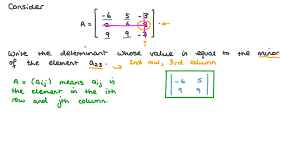 Consider
A = [ -6 5 -3
2 6
9 9 ] .
Write the determinant whose value is equal to the minor
of the element a23. → 2nd row, 3rd column
A = (aij) means aij is
the element in the ith
row and jth column
| -6 5 |
| 9 9 |